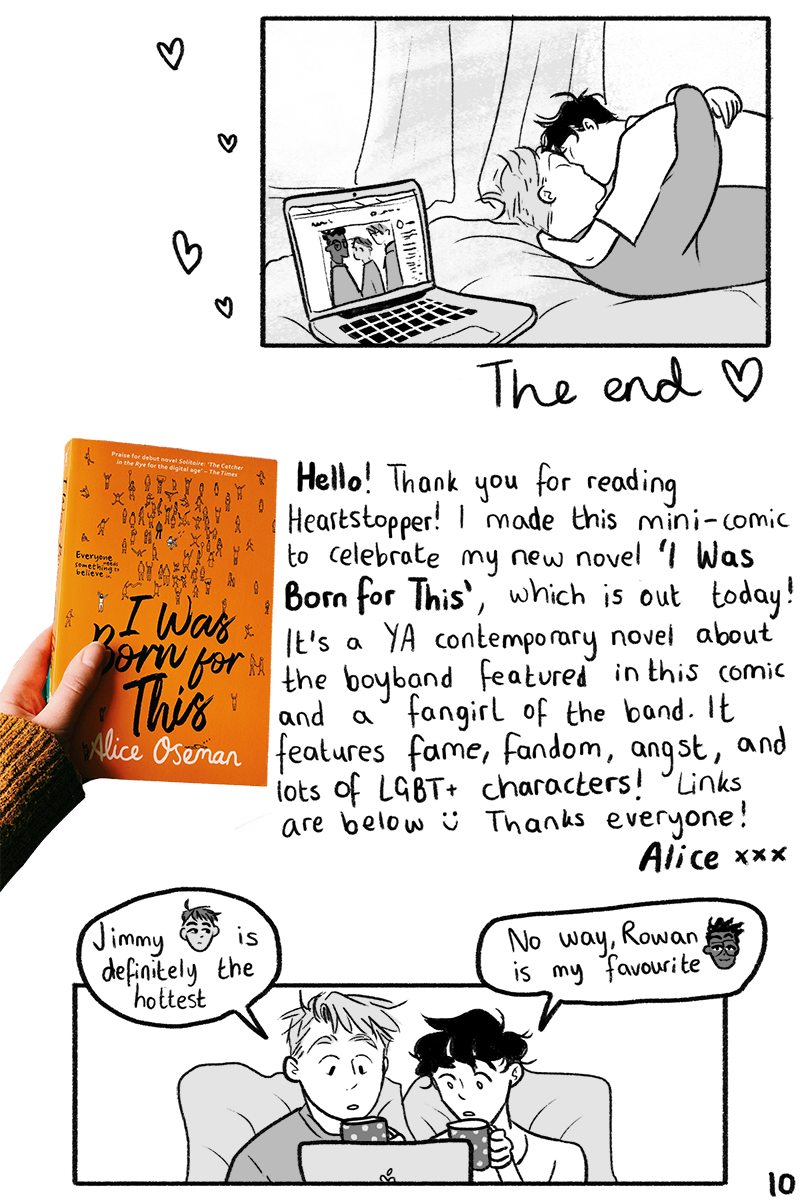 The end
Praise for debut novel Solitaire: 'The Catcher
in the Rye for the digital age' – The Times
Everyone needs
something to
believe in
I Was
Born for
This
Alice Oseman
Hello! Thank you for reading
Heartstopper! I made this mini-comic
to celebrate my new novel 'I Was
Born for This', which is out today!
It's a YA contemporary novel about
the boyband featured in this comic
and a fangirl of the band. It
features fame, fandom, angst, and
lots of LGBT+ characters! Links
are below Thanks everyone!
Alice xxx
Jimmy is
definitely the
hottest
No way, Rowan
is my favourite
10